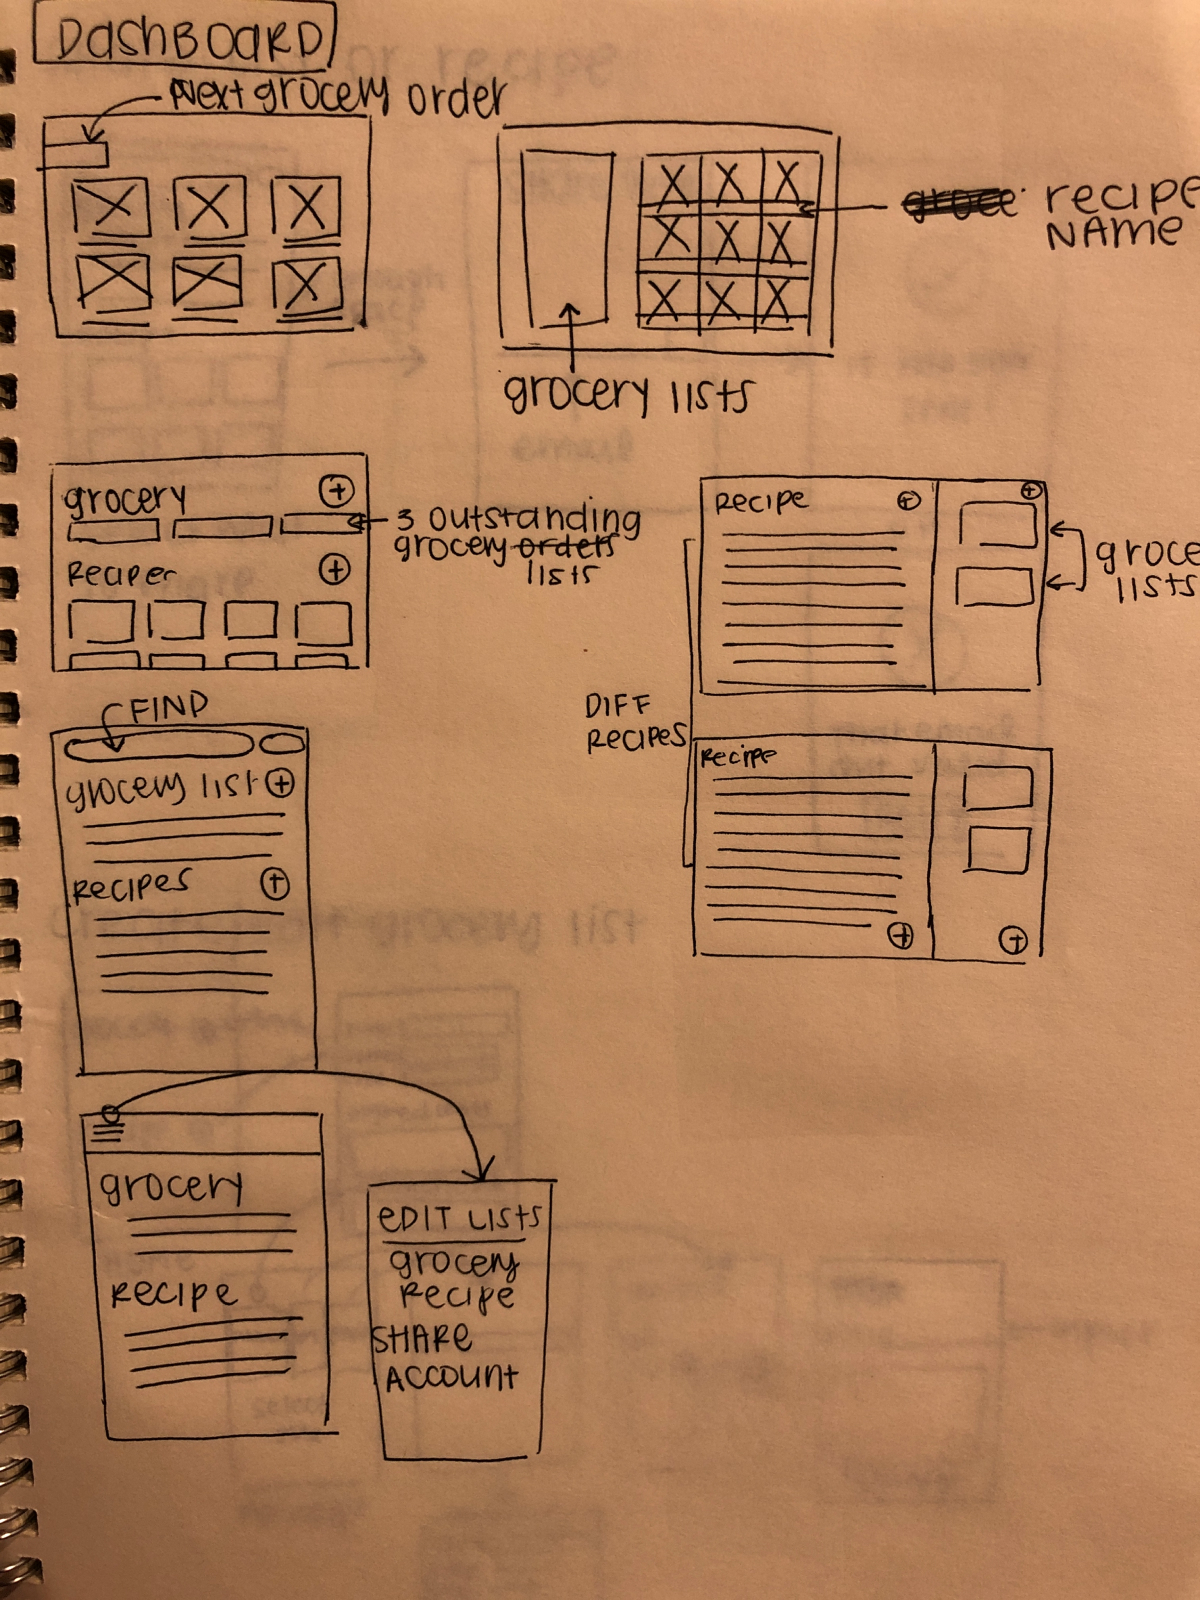 DASHBOARD
Next grocery order
recipe
NAME
grocery lists
grocery
3 outstanding
grocery orders
lists
Recipe
groce
lists
DIFF
RECIPES
FIND
grocery list
RECIPES
Recipe
grocery
RECIPE
EDIT LISTS
grocery
Recipe
SHARE
ACCOUNT